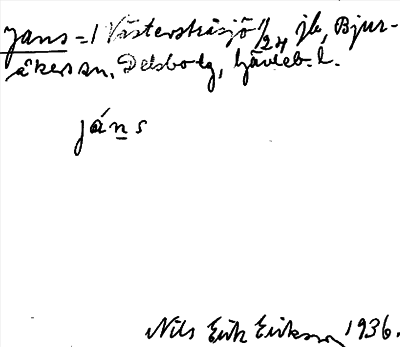 Jans = 1 Västerstråsjö 1/24 jb, Bjur-
åkers sn, Delsbo tg, Gävleb. l.
jáns
Nils Erik Erikson 1936.